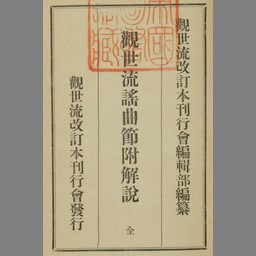 觀世流改訂本刊行會編輯部編纂
觀世流謠曲節附解說
全
觀世流改訂本刊行會發行